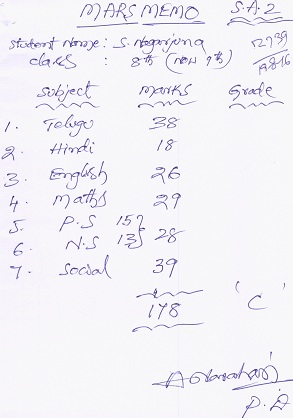 MARS MEMO S.A-2
Student Name: S. Nagarjuna
class : 8th (now 9th)
Subject Marks Grade
1. Telugu 38
2. Hindi 18
3. English 26
4. Maths 29
5. P.S 15
6. N.S 13 28
7. Social 39
178 'C'